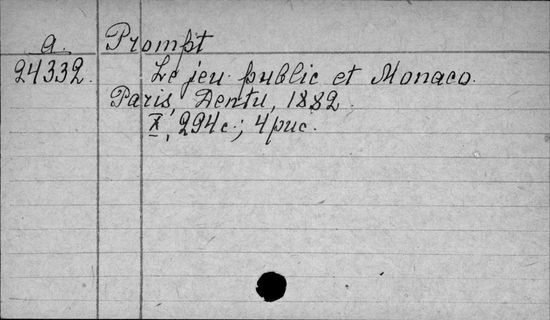 a. Prompt
24332. Le jeu public et Monaco.
Paris, Dentu, 1882.
X, 294c.; 4рис.